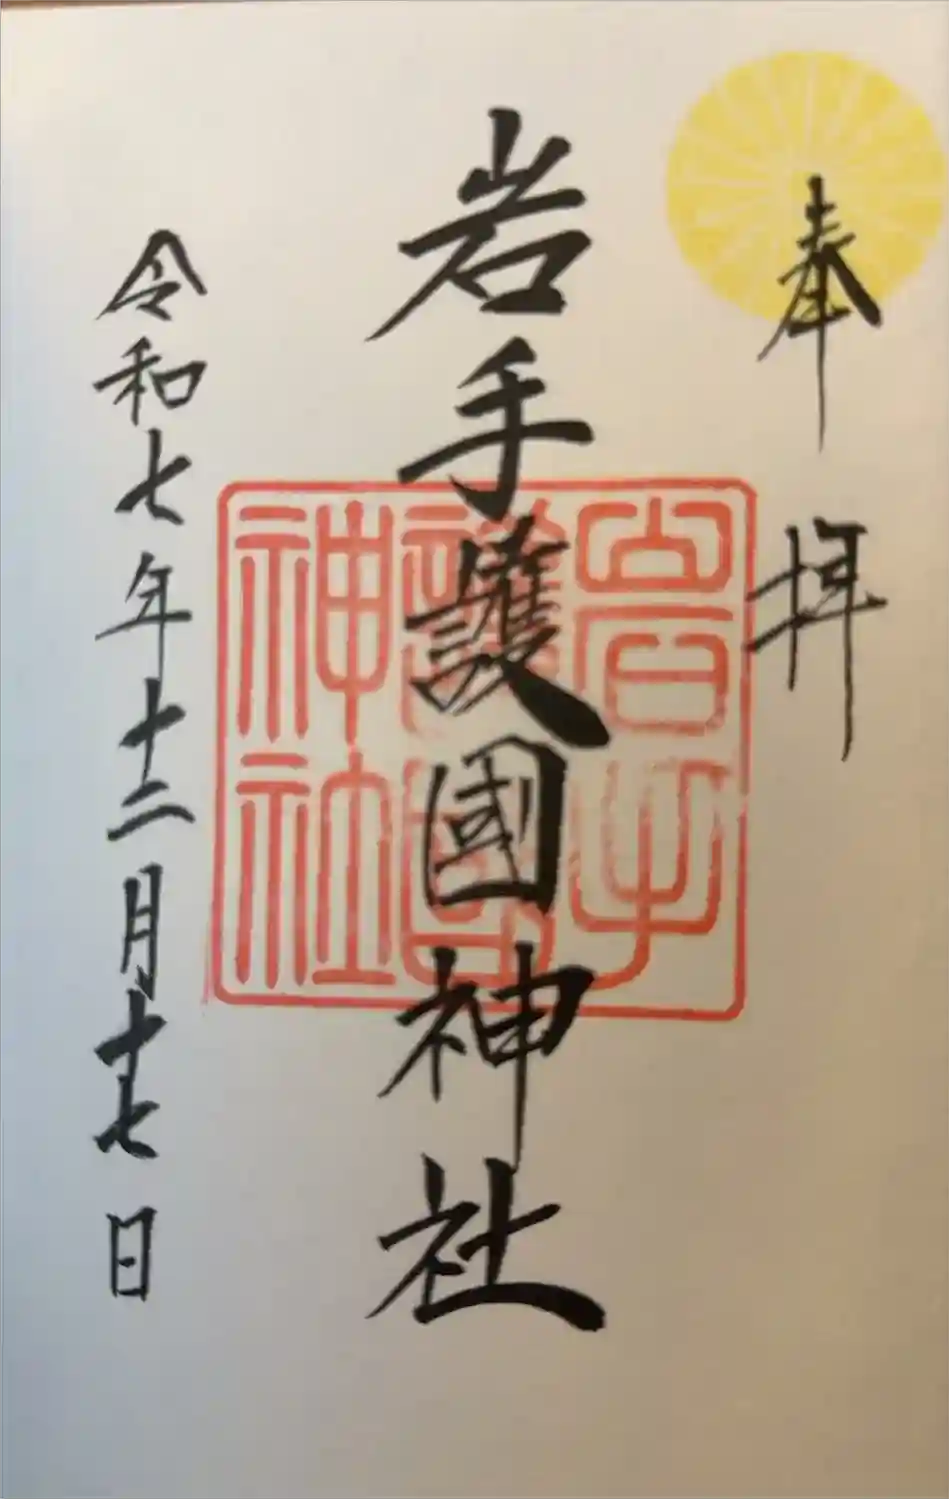 奉拝
岩手護國神社
岩手
護國
神社
令和七年十二月十七日